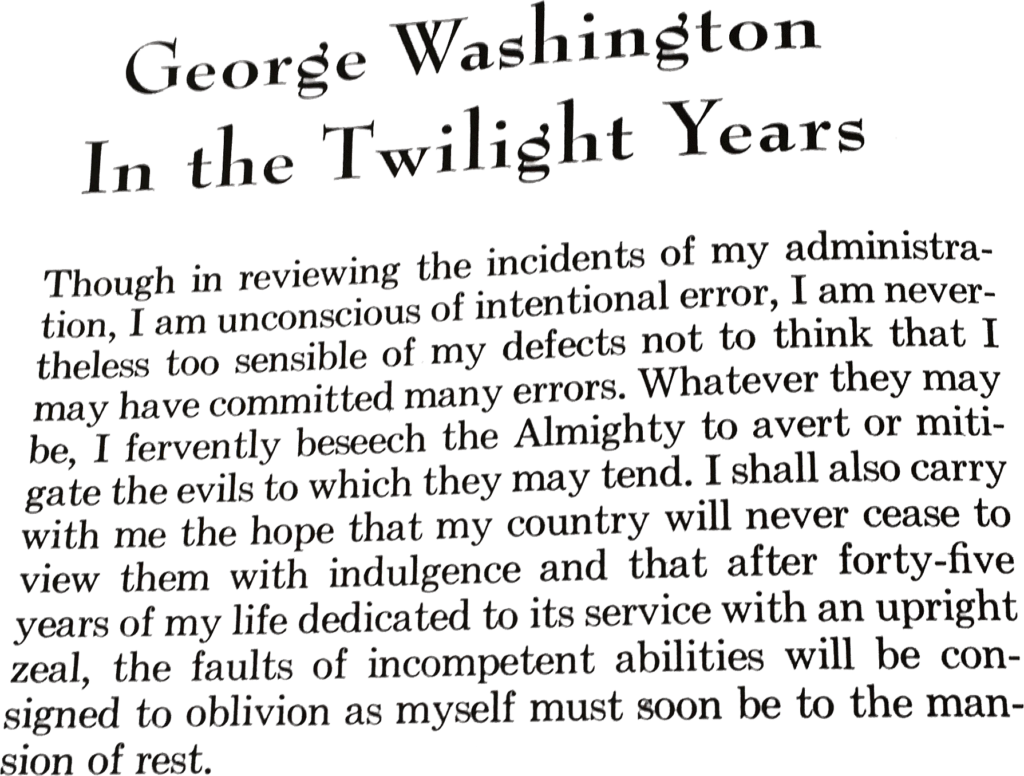 George Washington
In the Twilight Years
Though in reviewing the incidents of my administra-
tion, I am unconscious of intentional error, I am never-
theless too sensible of my defects not to think that I
may have committed many errors. Whatever they may
be, I fervently beseech the Almighty to avert or miti-
gate the evils to which they may tend. I shall also carry
with me the hope that my country will never cease to
view them with indulgence and that after forty-five
years of my life dedicated to its service with an upright
zeal, the faults of incompetent abilities will be con-
signed to oblivion as myself must soon be to the man-
sion of rest.